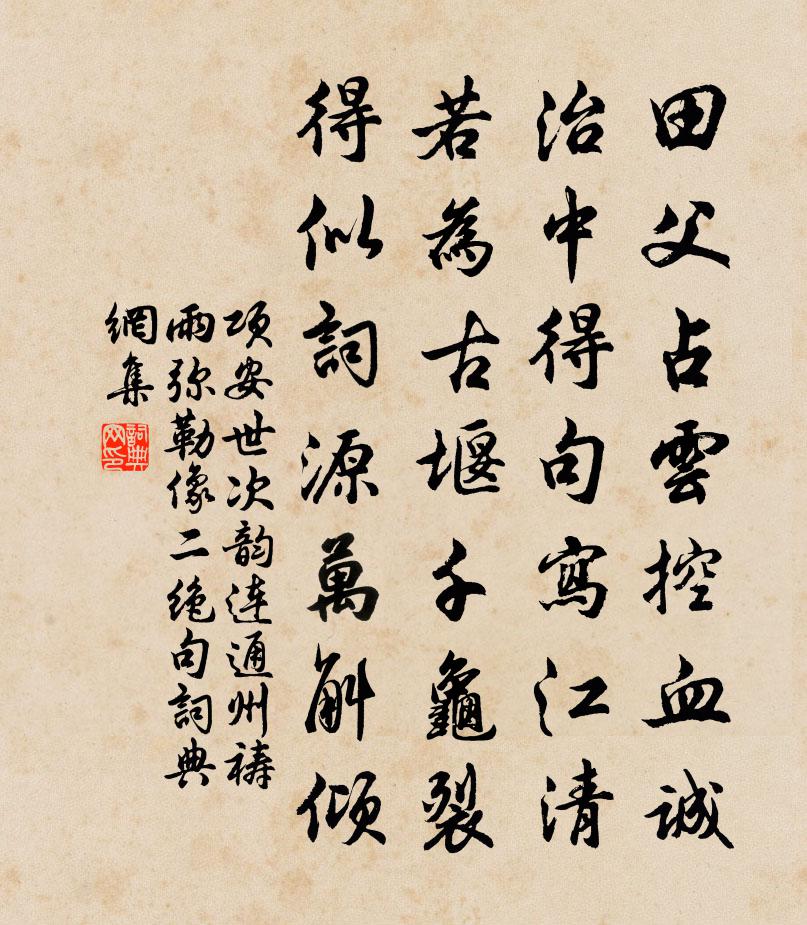 田父占雲控血誠
治中得句寫江清
若為古堰千龜裂
得似詞源萬斛傾
项安世次韵连通州祷
雨弥勒像二绝句詞典
網集
詞典网印